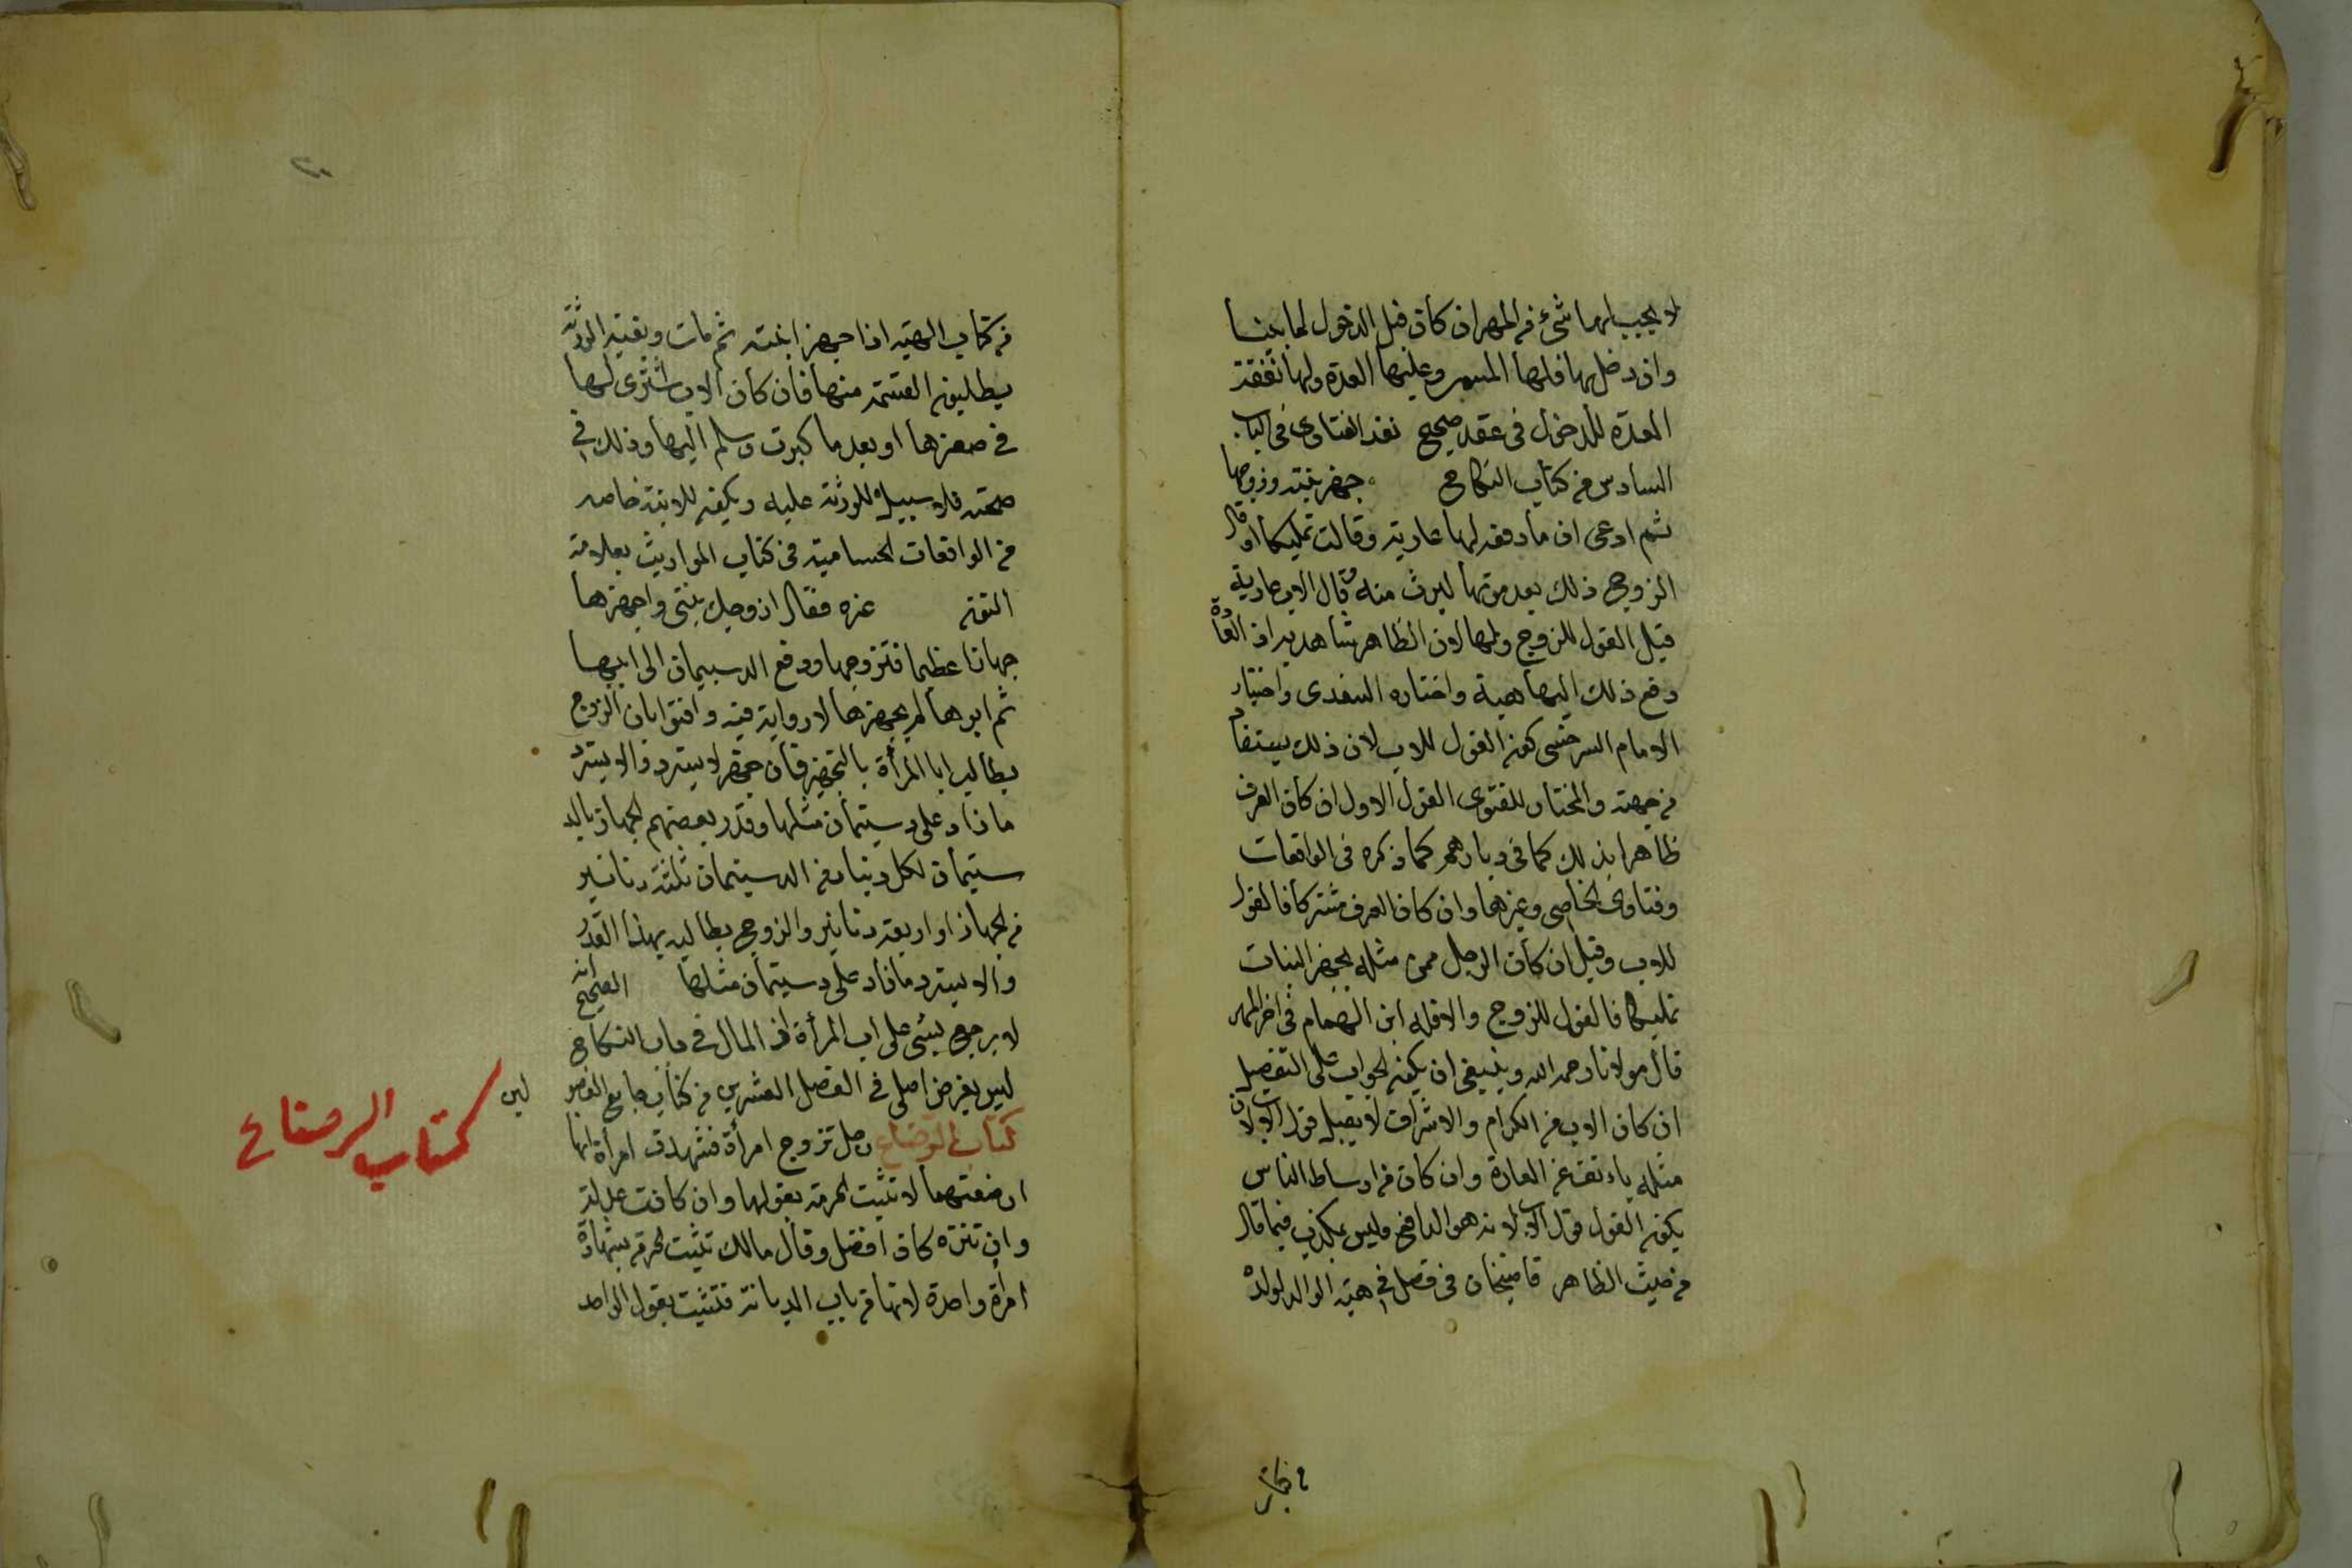 لا يجب لها شئ من المهر ان كان قبل الدخول لها بينا
وان دخل بها فلها المسمى وعليها العدة ولها نفقة
العدة للدخول فى عقد صحيح نقد الفتاوى فى الباب
السادس من كتاب النكاح جهز بنته وزوجها
ثم ادعى ان ما دفعه لها عارية وقالت تمليكا او قال
الزوج ذلك بعد موتها ليرث منه وقال الاب عارية
قيل القول للزوج ولها لان الظاهر شاهد به اذ العادة
دفع ذلك اليها هبة واختاره السغدى واختيار
الامام السرخسى كون القول للاب لان ذلك يستفاد
من جهته والمختار للفتوى القول الاول ان كان العرف
ظاهرا بذلك كما فى ديارهم كما ذكره فى الواقعات
وفتاوى الخاصى وغيرها وان كان العرف مشتركا فالقول
للاب وقيل ان كان الرجل ممن مثله يجهز البنات
تمليكا فالقول للزوج والا فله ابن الهمام فى اخر المهر
قال مولانا رحمه الله وينبغى ان يكون الجواب على التفصيل
ان كان الاب من الكرام والاشراف لا يقبل قول الاب لان
مثله يانف عن العارة وان كان من اوساط الناس
يكون القول قول الاب لانه هو الدافع وليس بمكذب فيما قال
من حيث الظاهر قاضيخان فى فصل فى هبة الوالد لولده
فى كتاب الهبة اذا جهز ابنته ثم مات وبقية الورثة
يطلبون القسمة منها فان كان الاب اشترى لها
فى صغرها او بعد ما كبرت وسلم اليها وذلك فى
صحته فلا سبيل للورثة عليه ويكون للابنة خاصه
من الواقعات الحسامية فى كتاب المواريث بعلامة
غره فقال ازوجك بنتى واجهزها
جهازا عظيما فتزوجها ودفع الدستيمان الى ابيها
ثم ابوها لم يجهزها لا رواية فيه وافتوا بان الزوج
يطالب ابا المرأة بالتجهيز فان جهز لا يسترد والا يسترد
ما زاد على دستيمان مثلها وقدر بعضهم الجهاز بالد
ستيمان لكل دينار من الدستيمان ثلثة دنانير
من الجهاز او اربعة دنانير والزوج يطالبه بهذا القدر
والا يسترد ما زاد على دستيمان مثلها الصحيح انه
لا يرجع بشئ على اب المرأة اذ المال فى باب النكاح
ليس بغرض اصلى فى الفصل العشرين من كتاب جامع الفصو
لين
كتاب الرضاع رجل تزوج امرأة فشهدت امرأة انها
كتاب الرضاع
ارضعتهما لا تثبت الحرمة بقولها وان كانت عدلة
وان تنزه كان افضل وقال مالك تثبت الحرمة بشهادة
امرأة واحدة لانها من باب الديانة فتثبت بقول الواحد